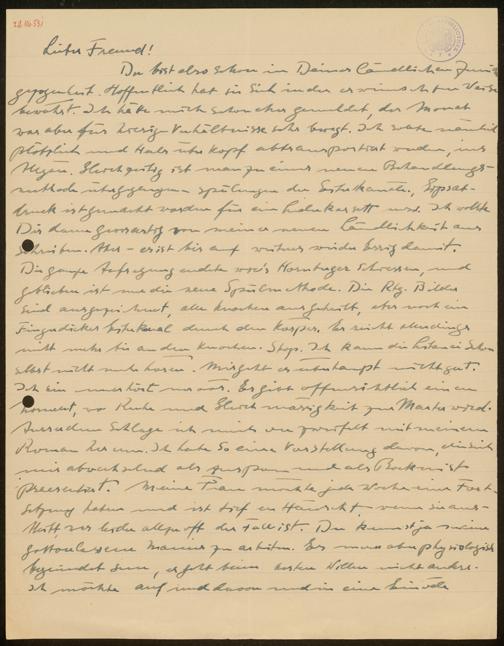 Lieber Freund!
Du bist also schon in Deiner ländlichen
Hoffentlich hat sie sich in der erwünschten Weise
bewährt. Ich hätte mich schon eher gemeldet, der Monat
war aber für hiesige Verhältnisse sehr bewegt. Ich
plötzlich und Hals über Kopf abtransportiert werden, ins
Gleichzeitig ist man zu einer neuen Behandlungs-
methode übergegangen Spülungen der Gipsab-
druck ist gemacht worden für ein Lederkorsett usw. Ich wollte
Dir dann von meiner neuen Ländlichkeit aus
schreiben. Aber - es ist bis auf weiteres wieder Essig damit.
Die ganze Aufregung endete wie's Hornberger Schiessen, und
geblieben ist nur die neue Spülmethode. Die Rtg. Bilder
sind ausgezeichnet, alle Knochen ausgeheilt, aber noch ein
Fingerdicker durch den Körper. Er reicht allerdings
nicht mehr bis an den Knochen. Stop. Ich kann die schon
selbst nicht mehr hören. Mir geht es überhaupt nicht gut.
Ich bin nervös. Es gibt offensichtlich einen
Moment, wo Ruhe und Gleichmässigkeit zur Marter wird.
Ausserdem schlage ich mich verzweifelt mit meinem
Roman herum. Ich habe so eine Vorstellung davon, die sich
mir abwechselnd als und als
praesentiert. Meine Frau möchte jede Woche eine Fort-
setzung haben und ist tief enttäuscht, wenn sie aus-
bleibt, was leider allzuoft der Fall ist. Du kennst ja meine
Manier zu arbeiten. Es muss aber physiologisch
begründet sein, es geht beim besten Willen nicht anders.
Ich möchte auf und davon und in eine Einöde